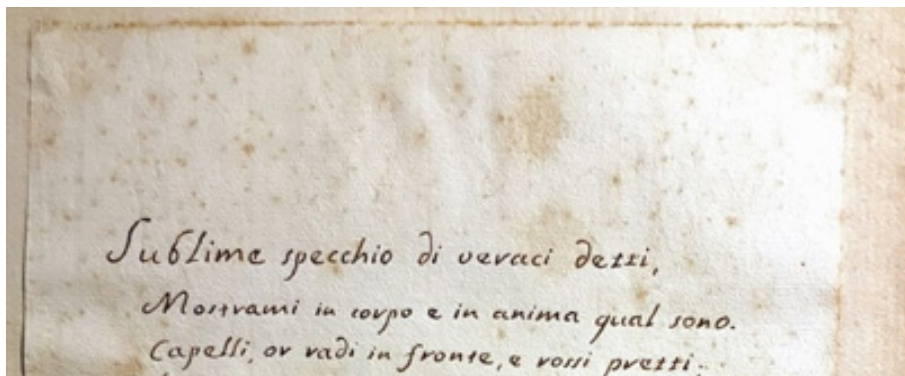 Sublime specchio di veraci detti,
Mostrami in corpo e in anima qual sono.
Capelli, or radi in fronte, e rossi pretti;